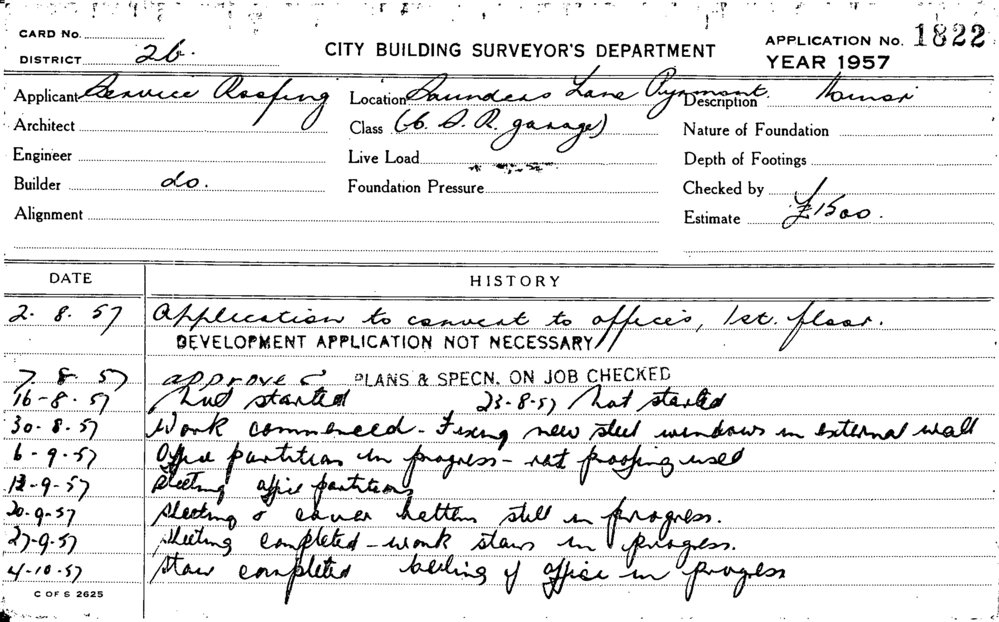 CARD No.
DISTRICT 26.
CITY BUILDING SURVEYOR'S DEPARTMENT
APPLICATION No. 1822
YEAR 1957
Applicant Service Roofing
Location Saunders Lane Pyrmont.
Description Minor
Architect
Class (C.D.R. garage)
Nature of Foundation
Engineer
Live Load
Depth of Footings
Builder do.
Foundation Pressure
Checked by
Alignment
Estimate £1500.
DATE HISTORY
2. 8. 57 Application to convert to offices, 1st. floor.
DEVELOPMENT APPLICATION NOT NECESSARY
7. 8. 57 approved PLANS & SPECN. ON JOB CHECKED
16-8-57 Not started 23-8-57 Not started
30-8-57 Work commenced - Fixing new steel windows in external wall
6-9-57 Office partition in progress - rat proofing used
12-9-57 Sheeting office partitions
20-9-57 Sheeting & cover battens still in progress.
27-9-57 Sheeting completed - work stairs in progress.
4-10-57 Stair completed Ceiling of office in progress
C OF S 2625